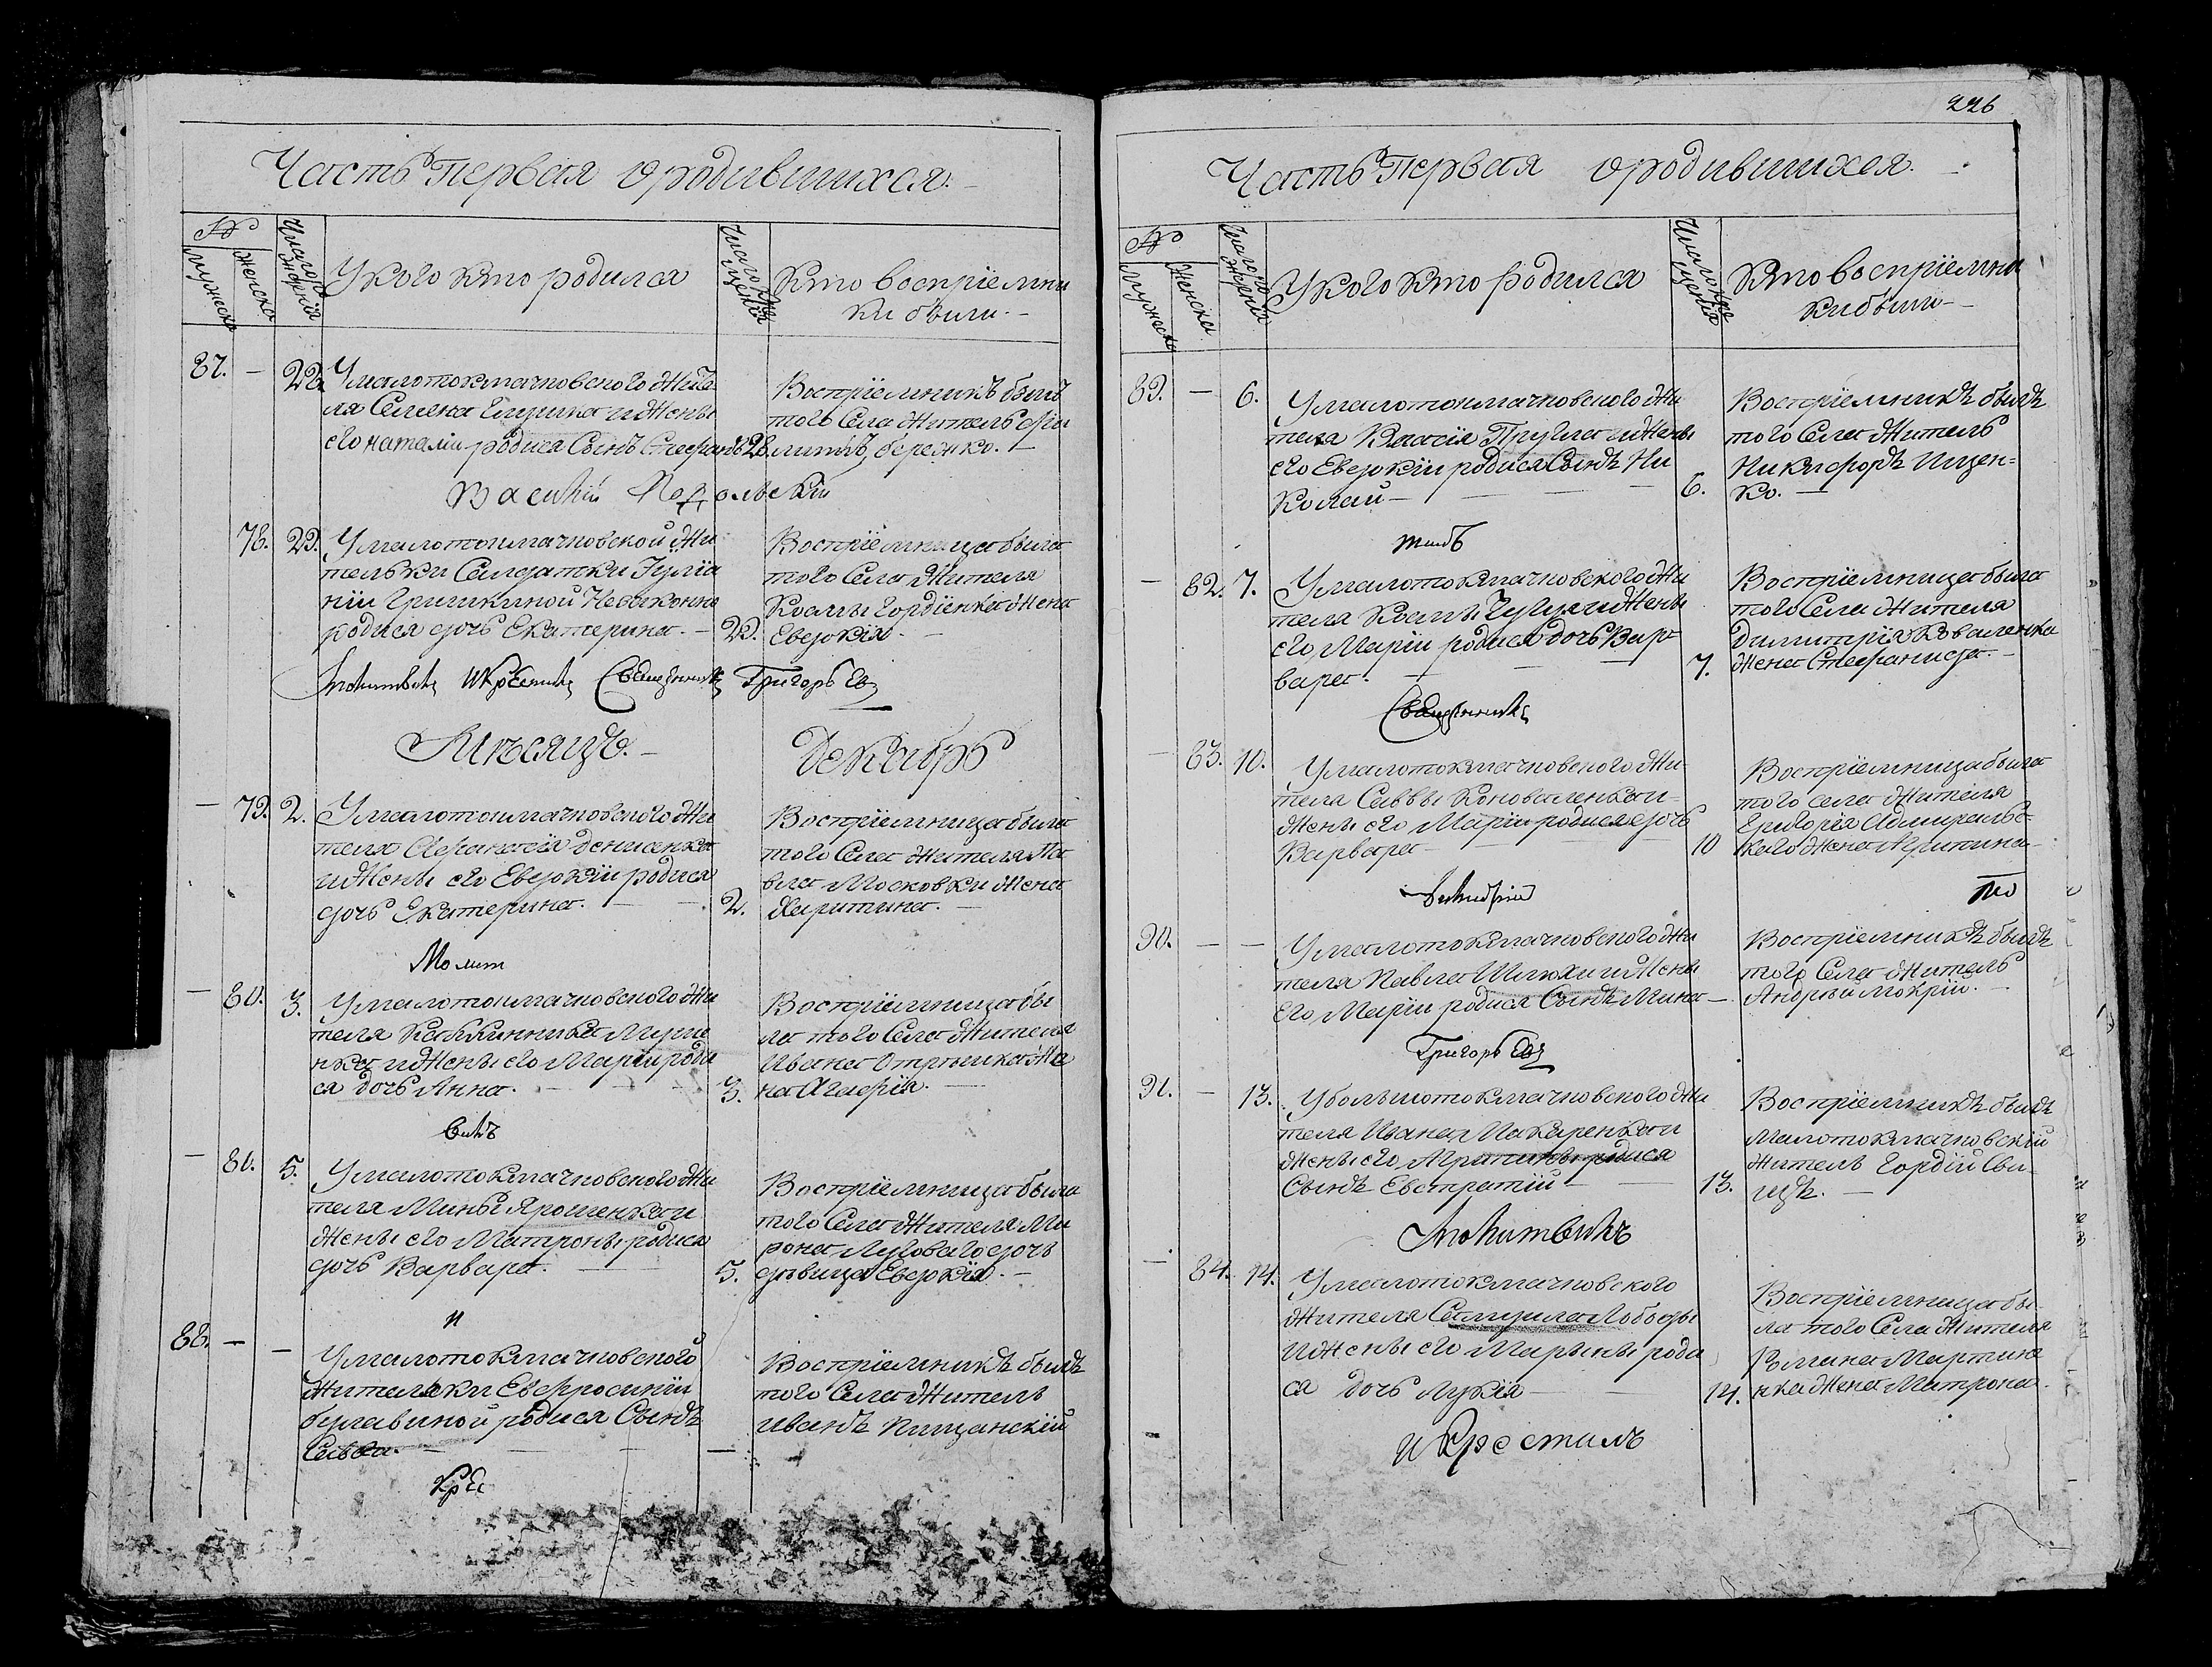 Часть первая о родившихся.
№
Мужеска
Женска
Число рождения
У кого кто родился
Число крещения
Кто восприемни
ки были.
87. — 22. У малотокмачковского жите
ля Семена и жены
его наталіи родися Сынъ Стефанъ 23.
Воспріемникъ былъ
того Села житель
бережко.
Василій Подольскій
78. 29. У малотокмачковской жи
тельки Салдатки Іулiа
ніи Гришкиной Незаконно
родися дочь Екатерина. — 29.
Воспріемница была
того Села жителя
Козмы Гордіенка жена
Евдокія.
Молитвилъ и Крестилъ Священникъ Григорь Ев
Мѣсяцъ. Декабрь
— 79. 2. У малотокмачковского жи
теля Афанасія Денисенка
и жены его Евдокіи родися
дочь Екатерина. — 2.
Воспріемница была
того Села жителя Па
вла Московки жена
Харитина.
Молит
— 80. 3. У малотокмачковского жи
теля
нка и жены его Маріи роди
ся дочь Анна. — 3.
Воспріемница бы
ла того Села жителя
Ивана Отрешка же
на Агафія.
вилъ
— 81. 5. У малотокмачковского жи
теля Мины Ярошенка и
жены его Матроны родися
дочь Варвара. — 5.
Воспріемница была
того Села жителя Ми
рона Луговаго дочь
дѣвица Евдокія.
и
88. — — У малотокмачковского
жительки Евфросиніи
булавиной родися Сынъ
Савва. —
Воспріемникъ былъ
того Села житель
Иванъ Пищанскій
Кре
226
Часть первая о родившихся.
№
Мужеска
Женска
Число рождения
У кого кто родился
Число крещения
Кто восприемни
ки были
89. — 6. У малотокмачковского жи
теля Власія Пругла и жены
его Евдокіи родися Сынъ Ни
колай — 6.
Воспріемникъ былъ
того Села житель
Никифоръ Ищен=
ко.
тилъ
— 82. 7. У малотокмачковского жи
теля Козмы и жены
его Маріи родися дочь Вар
вара. 7.
Воспріемница была
того Села жителя
Димитрія Коваленка
жена Стефанида.
Священникъ
— 83. 10. У малотокмачковского жи
теля Саввы Коноваленка и=
жены его Маріи родися дочь
Варвара 10
Воспріемница была
того села жителя
Григорія Адмиральс
кого жена Агрипина
90. — — У малотокмачковского жи
теля Павла Шлюхи и жены
Его Маріи родися Сынъ Мина —
Воспріемникъ былъ
того Села житель
Андрѣй Мокрій.
Григорь Ев
91. — 13. У большотокмачковского жи
теля Ивана Макаренка и
жены его Агрипины родися
Сынъ Евстратій — 13.
Воспріемникъ былъ
Малотокмачковскій
житель Гордій Сви
щъ.
Молитвилъ
— 84. 14. У малотокмачковского
жителя Самуила Лободы
и жены его Марины роди
ся дочь Лукія — 14.
Воспріемница бы
ла того Села жителя
Мартине
нка жена Матрона.
и Крестилъ